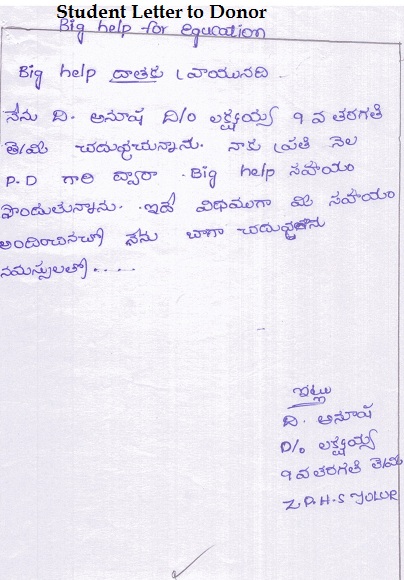 Student Letter to Donor
Big help for equcation
Big help దాతకు వ్రాయునది.
నేను ది. అనూష D/o లక్ష్మయ్య 9 వ తరగతి
తె/మీ చదువుచున్నాను. నాకు ప్రతి నెల
P.D గారి ద్వారా . Big help సహాయం
పొందుతున్నాను. ఇదే విధముగా మీ సహాయం
అందించినచో నేను బాగా
నమస్సులతో.....
ఇట్లు
ది. అనూష
D/o లక్ష్మయ్య
9 వ తరగతి తె/మీ
Z.P.H.S